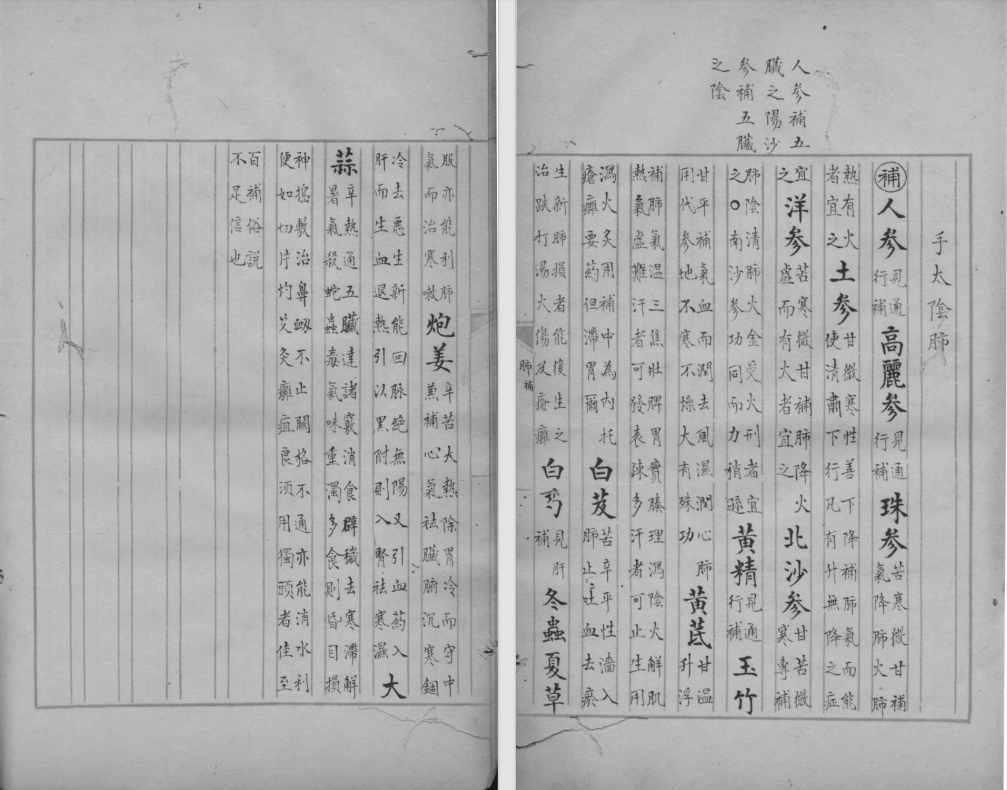 人參補五
臟之陽沙
參補五臟
之陰
手太陰肺
補人參見通行補高麗參見通行補珠參苦寒微甘補氣降肺火肺
熱有火者宜之土參甘微寒性善下降補肺氣而能使清肅下行凡有升無降之症
宜之洋參苦寒微甘補肺降火虛而有火者宜之北沙參甘苦微寒專補
肺陰清肺火金受火刑者宜之○南沙參功同而力稍遜黃精見通行補玉竹
甘平補氣血而潤去風濕潤心肺用代參地不寒不燥大有殊功黃芪甘溫升浮
補肺氣溫三焦壯脾胃實腠理瀉陰火解肌熱氣虛難汗者可發表疎多汗者可止生用
瀉火炙用補中為內托瘡癰要葯但滯胃爾白芨苦辛平性濇入肺止吐血去瘀
生新肺損者能復生之治跌打湯火傷及瘡癰白芍見肝補冬蟲夏草
肺補
服亦能利肺氣而治寒嗽炮姜辛苦大熱除胃冷而守中兼補心氣祛臟腑沉寒錮
冷去惡生新能回脉絶無陽又引血葯入肝而生血退熱引以黑附則入腎祛寒濕大
蒜辛熱通五臟達諸竅消食辟穢去寒滯解暑氣殺蛇蟲毒氣味重濁多食則昏目損
神搗敷治鼻衂不止關格不通亦能消水利便如切片灼艾灸癰疽良須用獨頭者佳至
百補俗説不足信也